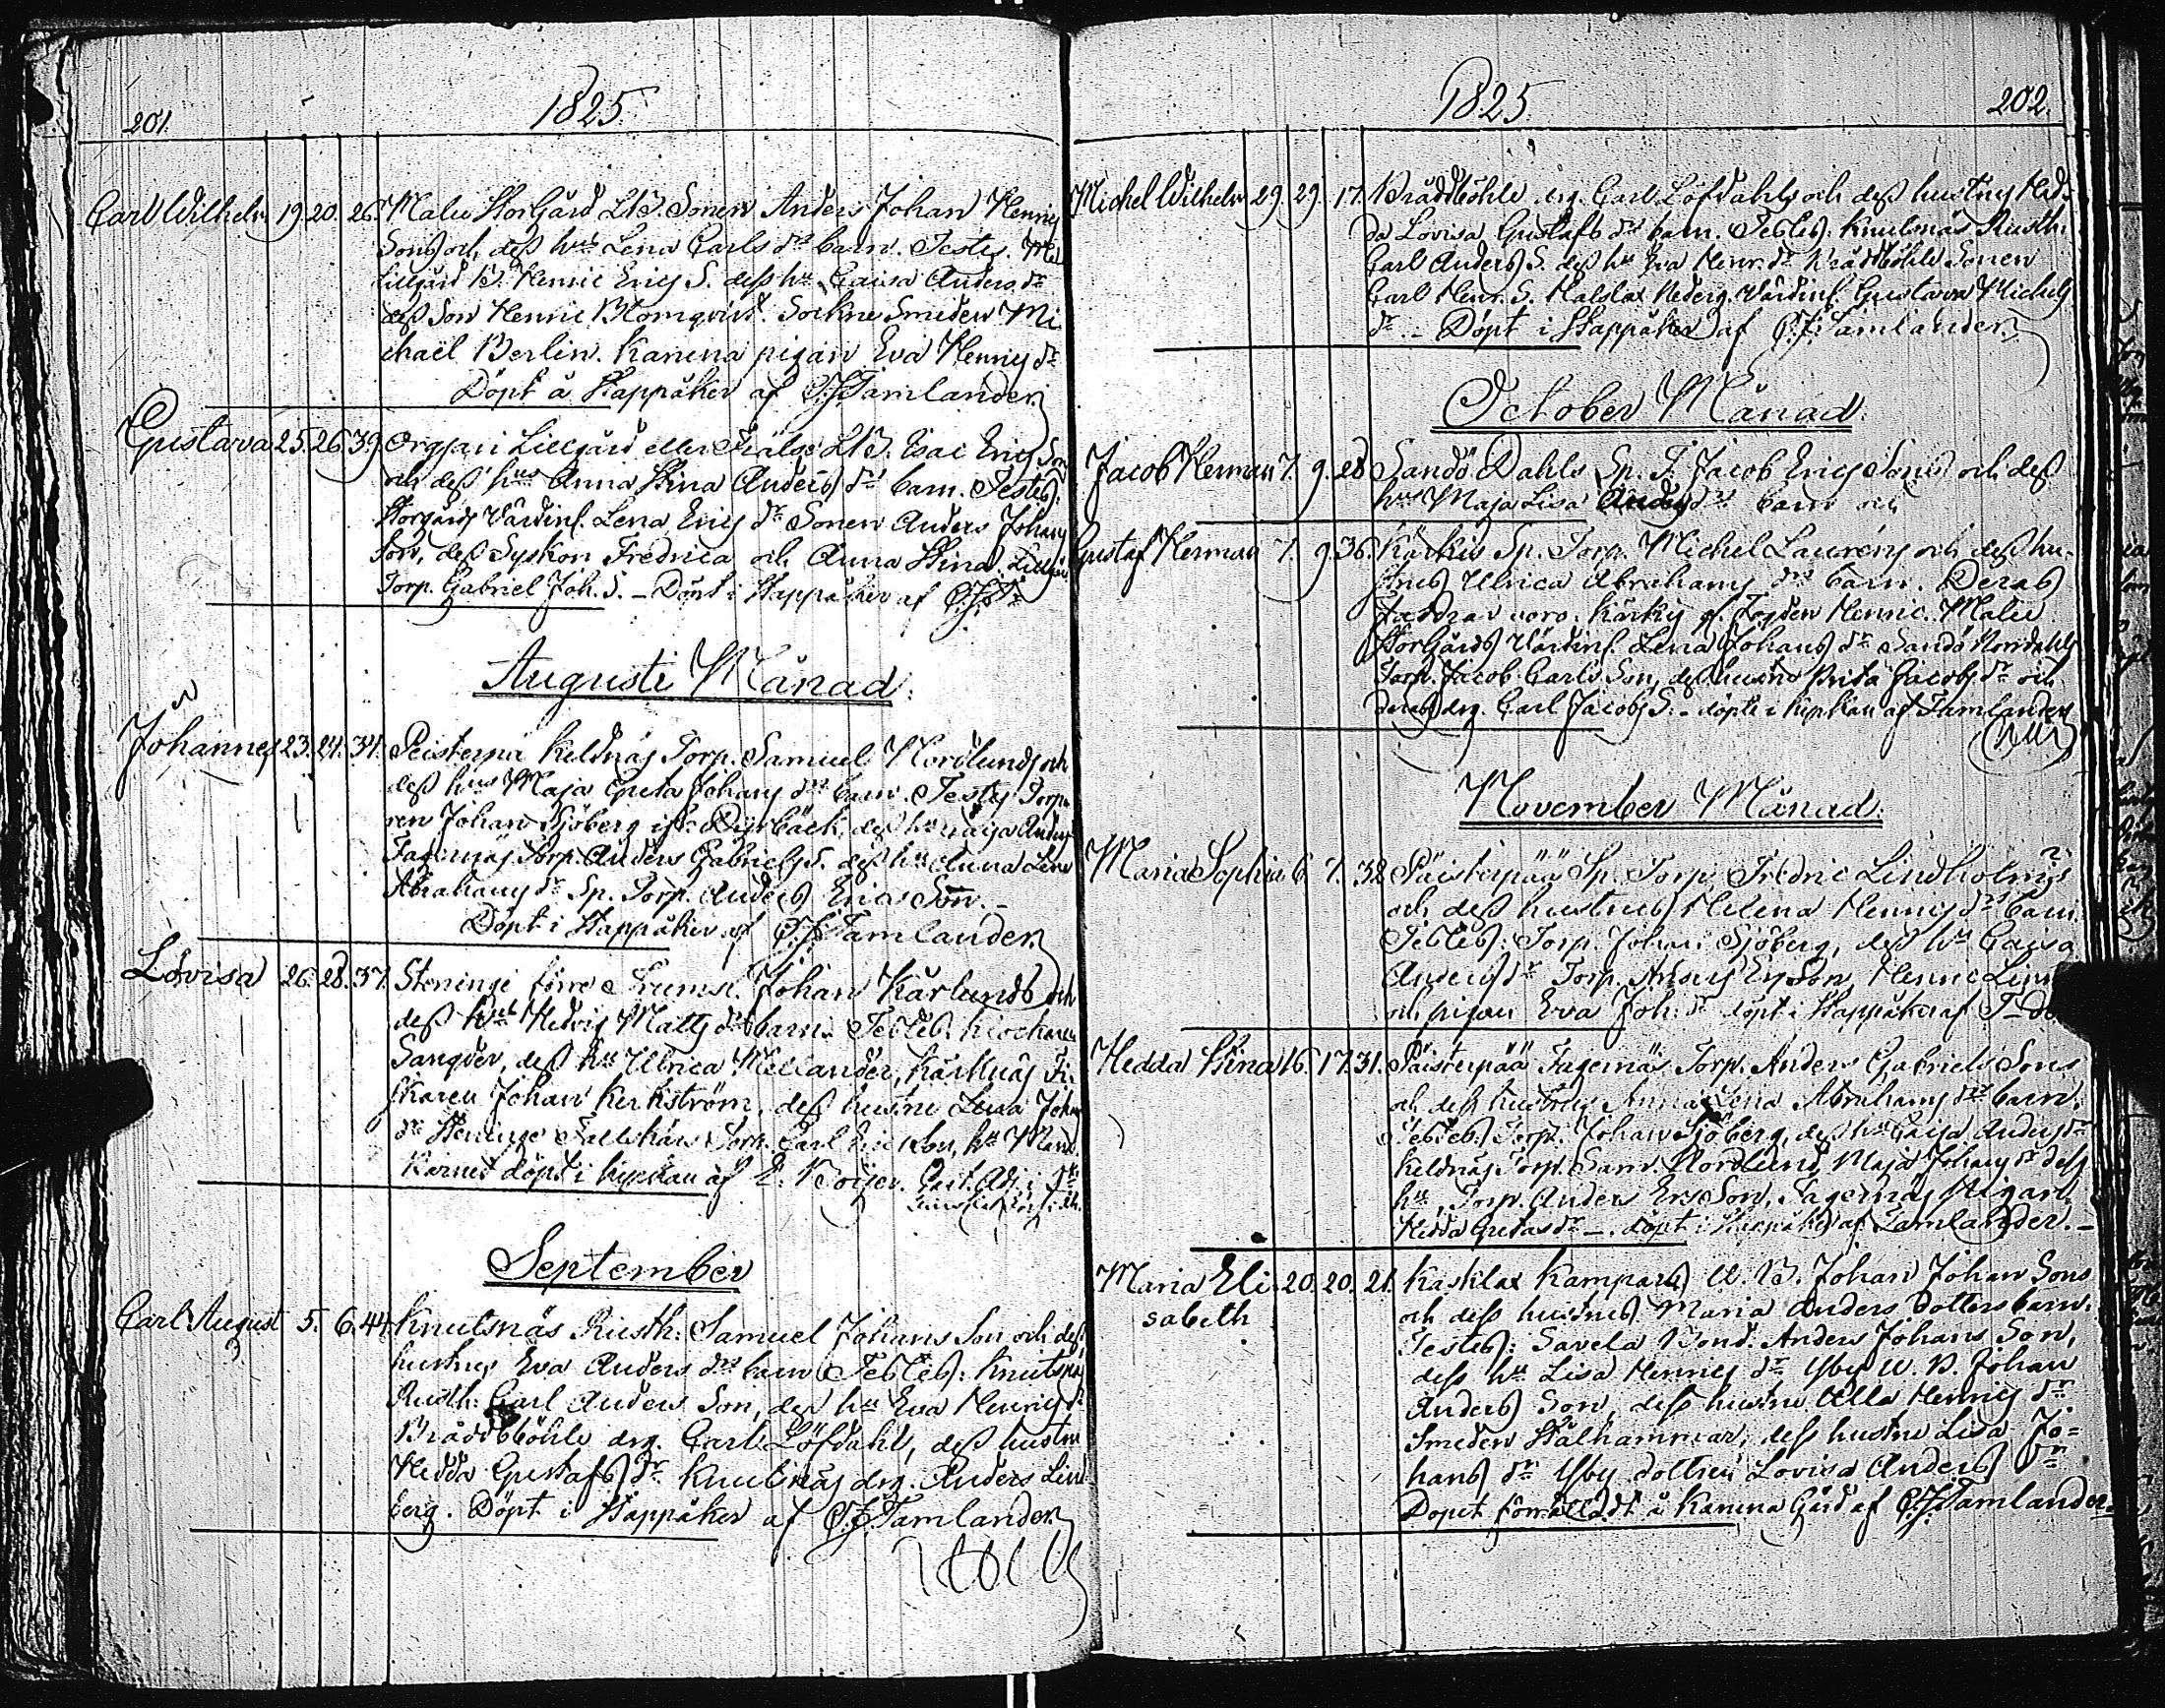 201.
1825.
Carl Wilhelm 19. 20. 26. Malu Storgård LB. Sonen Anders Johan Henrics
Sons och dess hus Lena Carls dr barn. Testes. Mal
Lillgård B. Henric Erics S. dess hu Caisa Anders dr
dess Son Henric Blomqvist. Sockne Smeden Mi
chaël Berlin. Kanena pigan Eva Henrics dr
Döpt å Stappåker af P.J. Tamlander.
Gustava 25. 26. 39. Orgpari Lillgård eller Frälse LB. Esac Erics Son
och dess hus Anna Stina Anders drs barn. Testes.
Storgårds Värdinf. Lena Erics dr Sonen Anders Johans
Son, dess Syskon Fredrica och Anna Stina. Lillgård
Torp. Gabriel Joh. S. – Döpt i Stappåker af
Augusti Månad.
Johannes 23. 24. 34. Peisterpä Keldnäs Torp. Samuel Nordlunds och
dess hus Maja Greta Johans drs barn. Testes Torpa
ren Johan Sjöberg dess hu Caisa Anders
Fagernäs Torp. Anders Gabriels S. dess hu Anna Lena
Abrahams dr Sp. Torp. Anders Erics Son. –
Döpt i Stappåker af P.J. Tamlander.
Lovisa 26. 28. 37. Steninge förre Trumsl. Johan Kärlunds och
dess hus Hedvig Matts drs barn. Testes. Klockaren
Sanqder, dess hu Ulrica Mellander, Kärknäs Fi-
skaren Johan Kerkström, dess hustru Lena Johans
dr Steninge Torp. Carl Ericsson, hu
Barnet döpt i kyrkan af E. Past. Adj. i
September
Carl August 5. 6. 44. Knutsnäs Rusth: Samuel Johans Son och dess
hustrus Eva Anders drs barn Testes: Knutsnäs
Rusth: Carl Anders Son, dess hu Eva Henrics dr
Bråddböhle drg. Carl Löfdahl, dess hustru
Hedda Gustafs dr Knutsnäs drg. Anders Lind
berg. Döpt i Stappåker af P.J. Tamlander.
1825.
202.
Michel Wilhelm 29. 29. 17. Bråddböhle drg. Carl Löfdahls och dess hustrus Hed-
da Lovisa Gustafs drs barn. Testes. Knutsnäs Rusth.
Carl Anders S. dess hu Eva Henr. dr Bråddböhle Sonen
Carl Henr. S. Malslax Nederg. Värdinf. Gustava Michels
dr. – Döpt i Stappåker af P.J. Tamlander.
October Månad.
Jacob Herman 7. 9. 28 Sandö Dahls Sp. T. Jacob Erics Sons och dess
hus Maja Lisa Anders drs barn och
Gustaf Herman 7. 9. 36. Kärkis Sp. Torp. Michel Laurens och dess hu-
strus Ulrica Abrahams drs barn. Deras
faddrar voro. Kärkis Henric. Malu
Storgårds Värdinf. Lena Johans dr Sandö Norrdahls
Torp. Jacob Carls Son, dess hustru Brita Jacobs dr och
deras drg. Carl Jacobs S. – döpte i kyrkan af Tamlander
November Månad.
Maria Sophia 6. 7. 38 Päisterpää Sp. Torp. Fredric Lindholms
och dess hustrus Helena Henrics drs barn
Testes: Torp. Johan Sjöberg, dess hu Caisa
Anders dr Torp. Anders Ericson, Henric
och pigan Eva Joh: dr döpt i Stappåker af
Hedda Stina 16. 17. 31. Päisterpää Fagernäs Torp. Anders Gabriels Sons
och dess hustrus Anna Lena Abrahams drs barn.
Testes. Torp. Johan Sjöberg, dess hu Caisa Anders dr
Keldnäs Torp. Sam. Nordlund, Maja Johans dr dess
hu, Torp. Anders Ers Son, Fagernäs Pigan
Hedda Gretas dr –. döpt i Stappåker af Tamlander. –
Maria Eli- 20. 20. 21. Kasklax Kampars U. B. Johan Johan Sons
sabeth och dess hustrus Maria Anders Dotters barn.
Testes: Savela Bond. Anders Johans Son,
dess hu Lisa Henrics dr Yby U. B. Johan
Anders Son, dess hustru Ulla Henrics dr
Smeden Stålhammar, dess hustru Lisa Jo=
hans dr Yby dottren Lovisa Anders dr
Dopet förrättadt å Kanena Gård af P.J. Tamlander